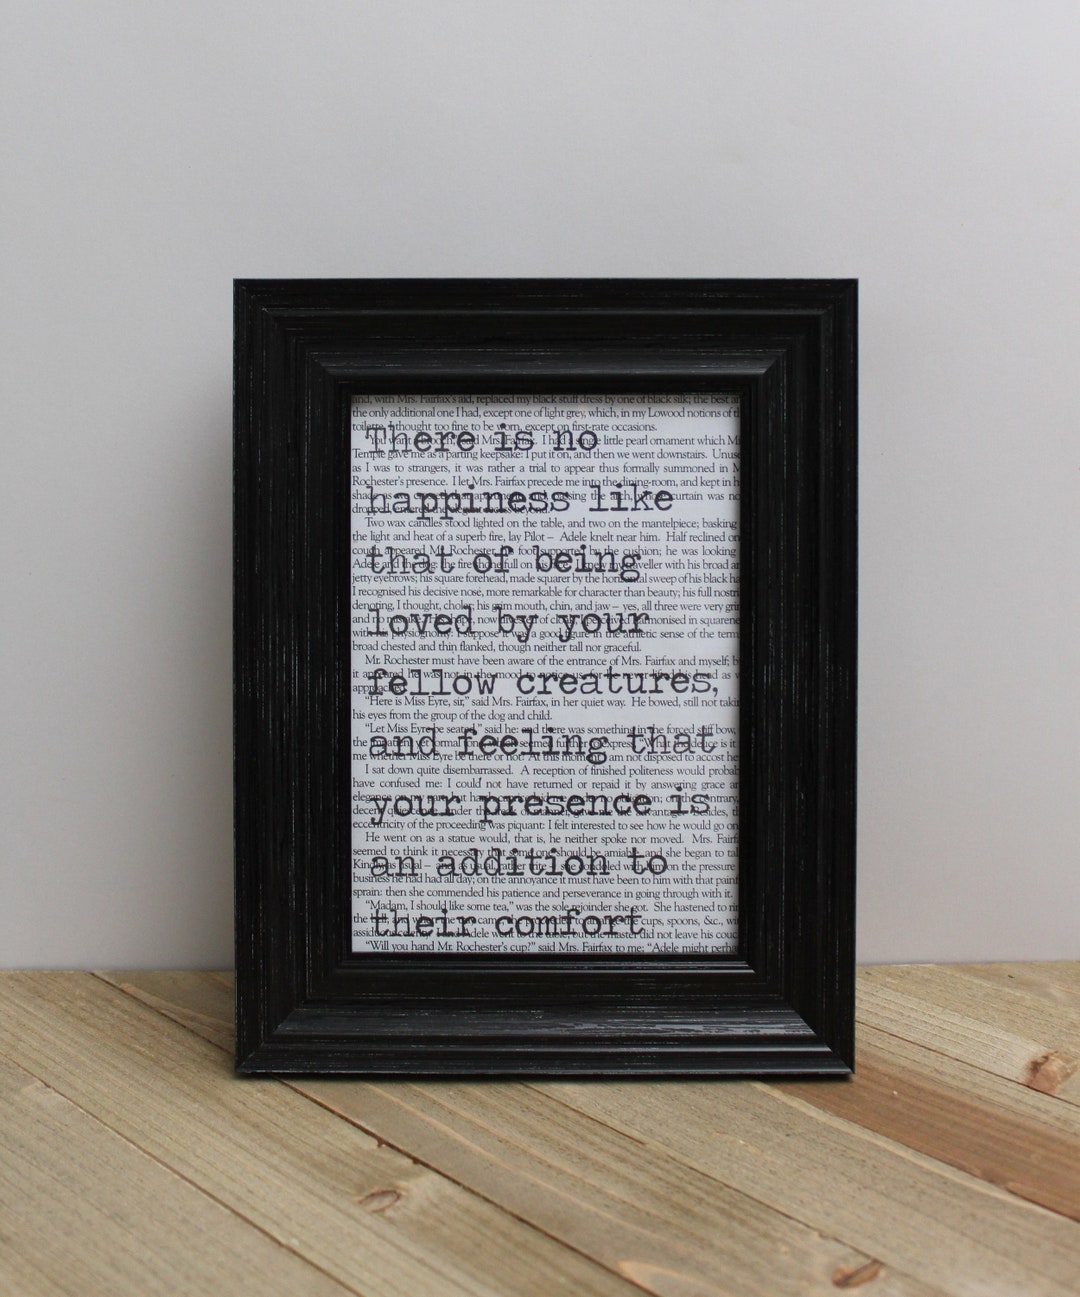 There is no
happiness like
that of being
loved by your
fellow creatures,
and feeling that
your presence is
an addition to
their comfort
and, with Mrs. Fairfax's aid, replaced my black stuff dress by one of black silk; the best
the only additional one I had, except one of light grey, which, in my Lowood notions of
toilette, I thought too fine to be worn, except on first-rate occasions.
"You want a brooch," said Mrs. Fairfax. I had a single little pearl ornament which
Temple gave me as a parting keepsake: I put it on, and then we went downstairs.
as I was to strangers, it was rather a trial to appear thus formally summoned in
Rochester's presence. I let Mrs. Fairfax precede me into the dining-room, and kept in
passing the arch, whose curtain was
dropped, entered the elegant recess beyond.
Two wax candles stood lighted on the table, and two on the mantelpiece; basking
the light and heat of a superb fire, lay Pilot – Adele knelt near him. Half reclined on
couch appeared Mr. Rochester, foot supported by the cushion; he was looking
Adele and the dog: the fire shone full on his I knew my traveller with his broad
jetty eyebrows; his square forehead, made squarer by the horizontal sweep of his black
I recognised his decisive nose, more remarkable for character than beauty; his full
denoting, I thought, choler; his grim mouth, chin, and jaw – yes, all three were very
and no mistake. shape, now of cloak, I perceived harmonised in
with his physiognomy: I suppose it was a good figure in the athletic sense of the
broad chested and thin flanked, though neither tall nor graceful.
Mr. Rochester must have been aware of the entrance of Mrs. Fairfax and myself;
it appeared he was not in the mood to notice us, for he never lifted his head as
approached.
"Here is Miss Eyre, sir," said Mrs. Fairfax, in her quiet way. He bowed, still not
his eyes from the group of the dog and child.
"Let Miss Eyre be seated," said he: and there was something in the forced stiff bow,
the is it
me whether Miss Eyre be there or not? At this moment I am not disposed to accost
I sat down quite disembarrassed. A reception of finished politeness would
have confused me: I could not have returned or repaid it by answering grace
elegance on my part; but
decent quiescence, under the advantage. Besides,
eccentricity of the proceeding was piquant: I felt interested to see how he would go on
He went on as a statue would, that is, he neither spoke nor moved. Mrs.
seemed to think it necessary that some one should be amiable, and she began to
Kindly, as usual – and, as usual, rather trite – she condoled with him on the pressure
business he had had all day; on the annoyance it must have been to him with that
sprain: then she commended his patience and perseverance in going through with it.
"Madam, I should like some tea," was the sole rejoinder she got. She hastened to
the bell; and when the tray came, she proceeded to arrange the cups, spoons, &c.,
assiduous celerity. I and Adele went to the table; but the master did not leave his
"Will you hand Mr. Rochester's cup?" said Mrs. Fairfax to me; "Adele might